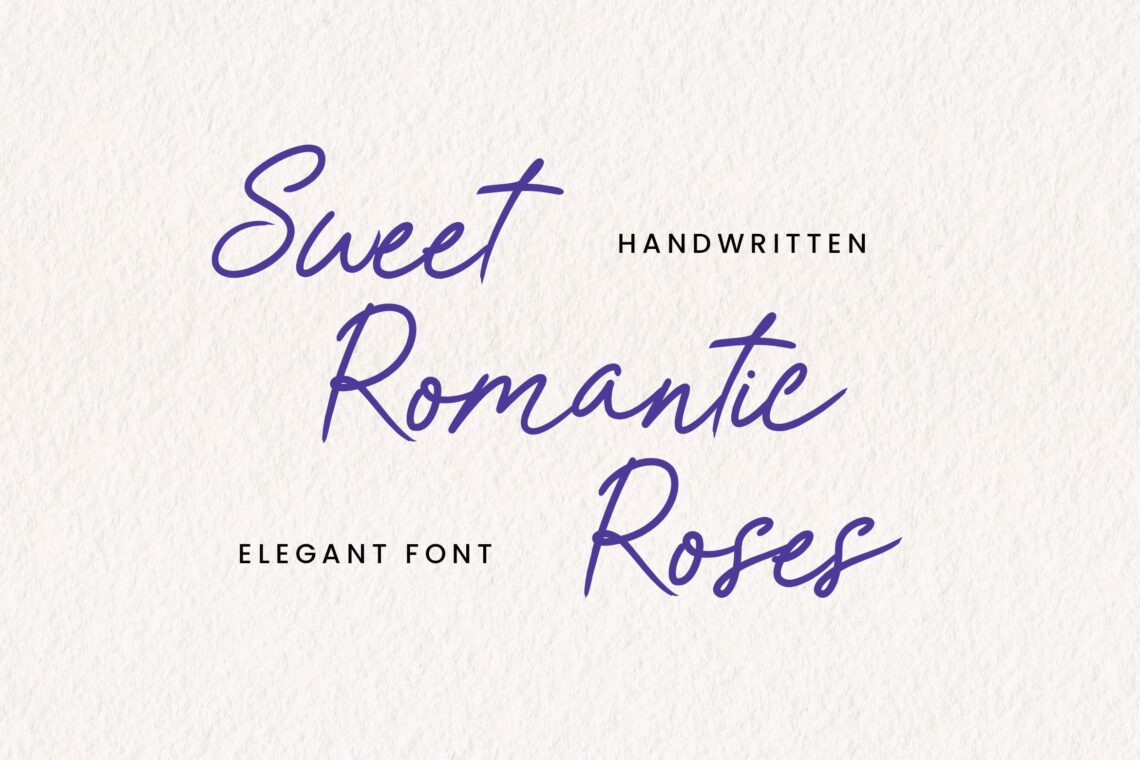 Sweet
HANDWRITTEN
Romantic
Roses
ELEGANT FONT